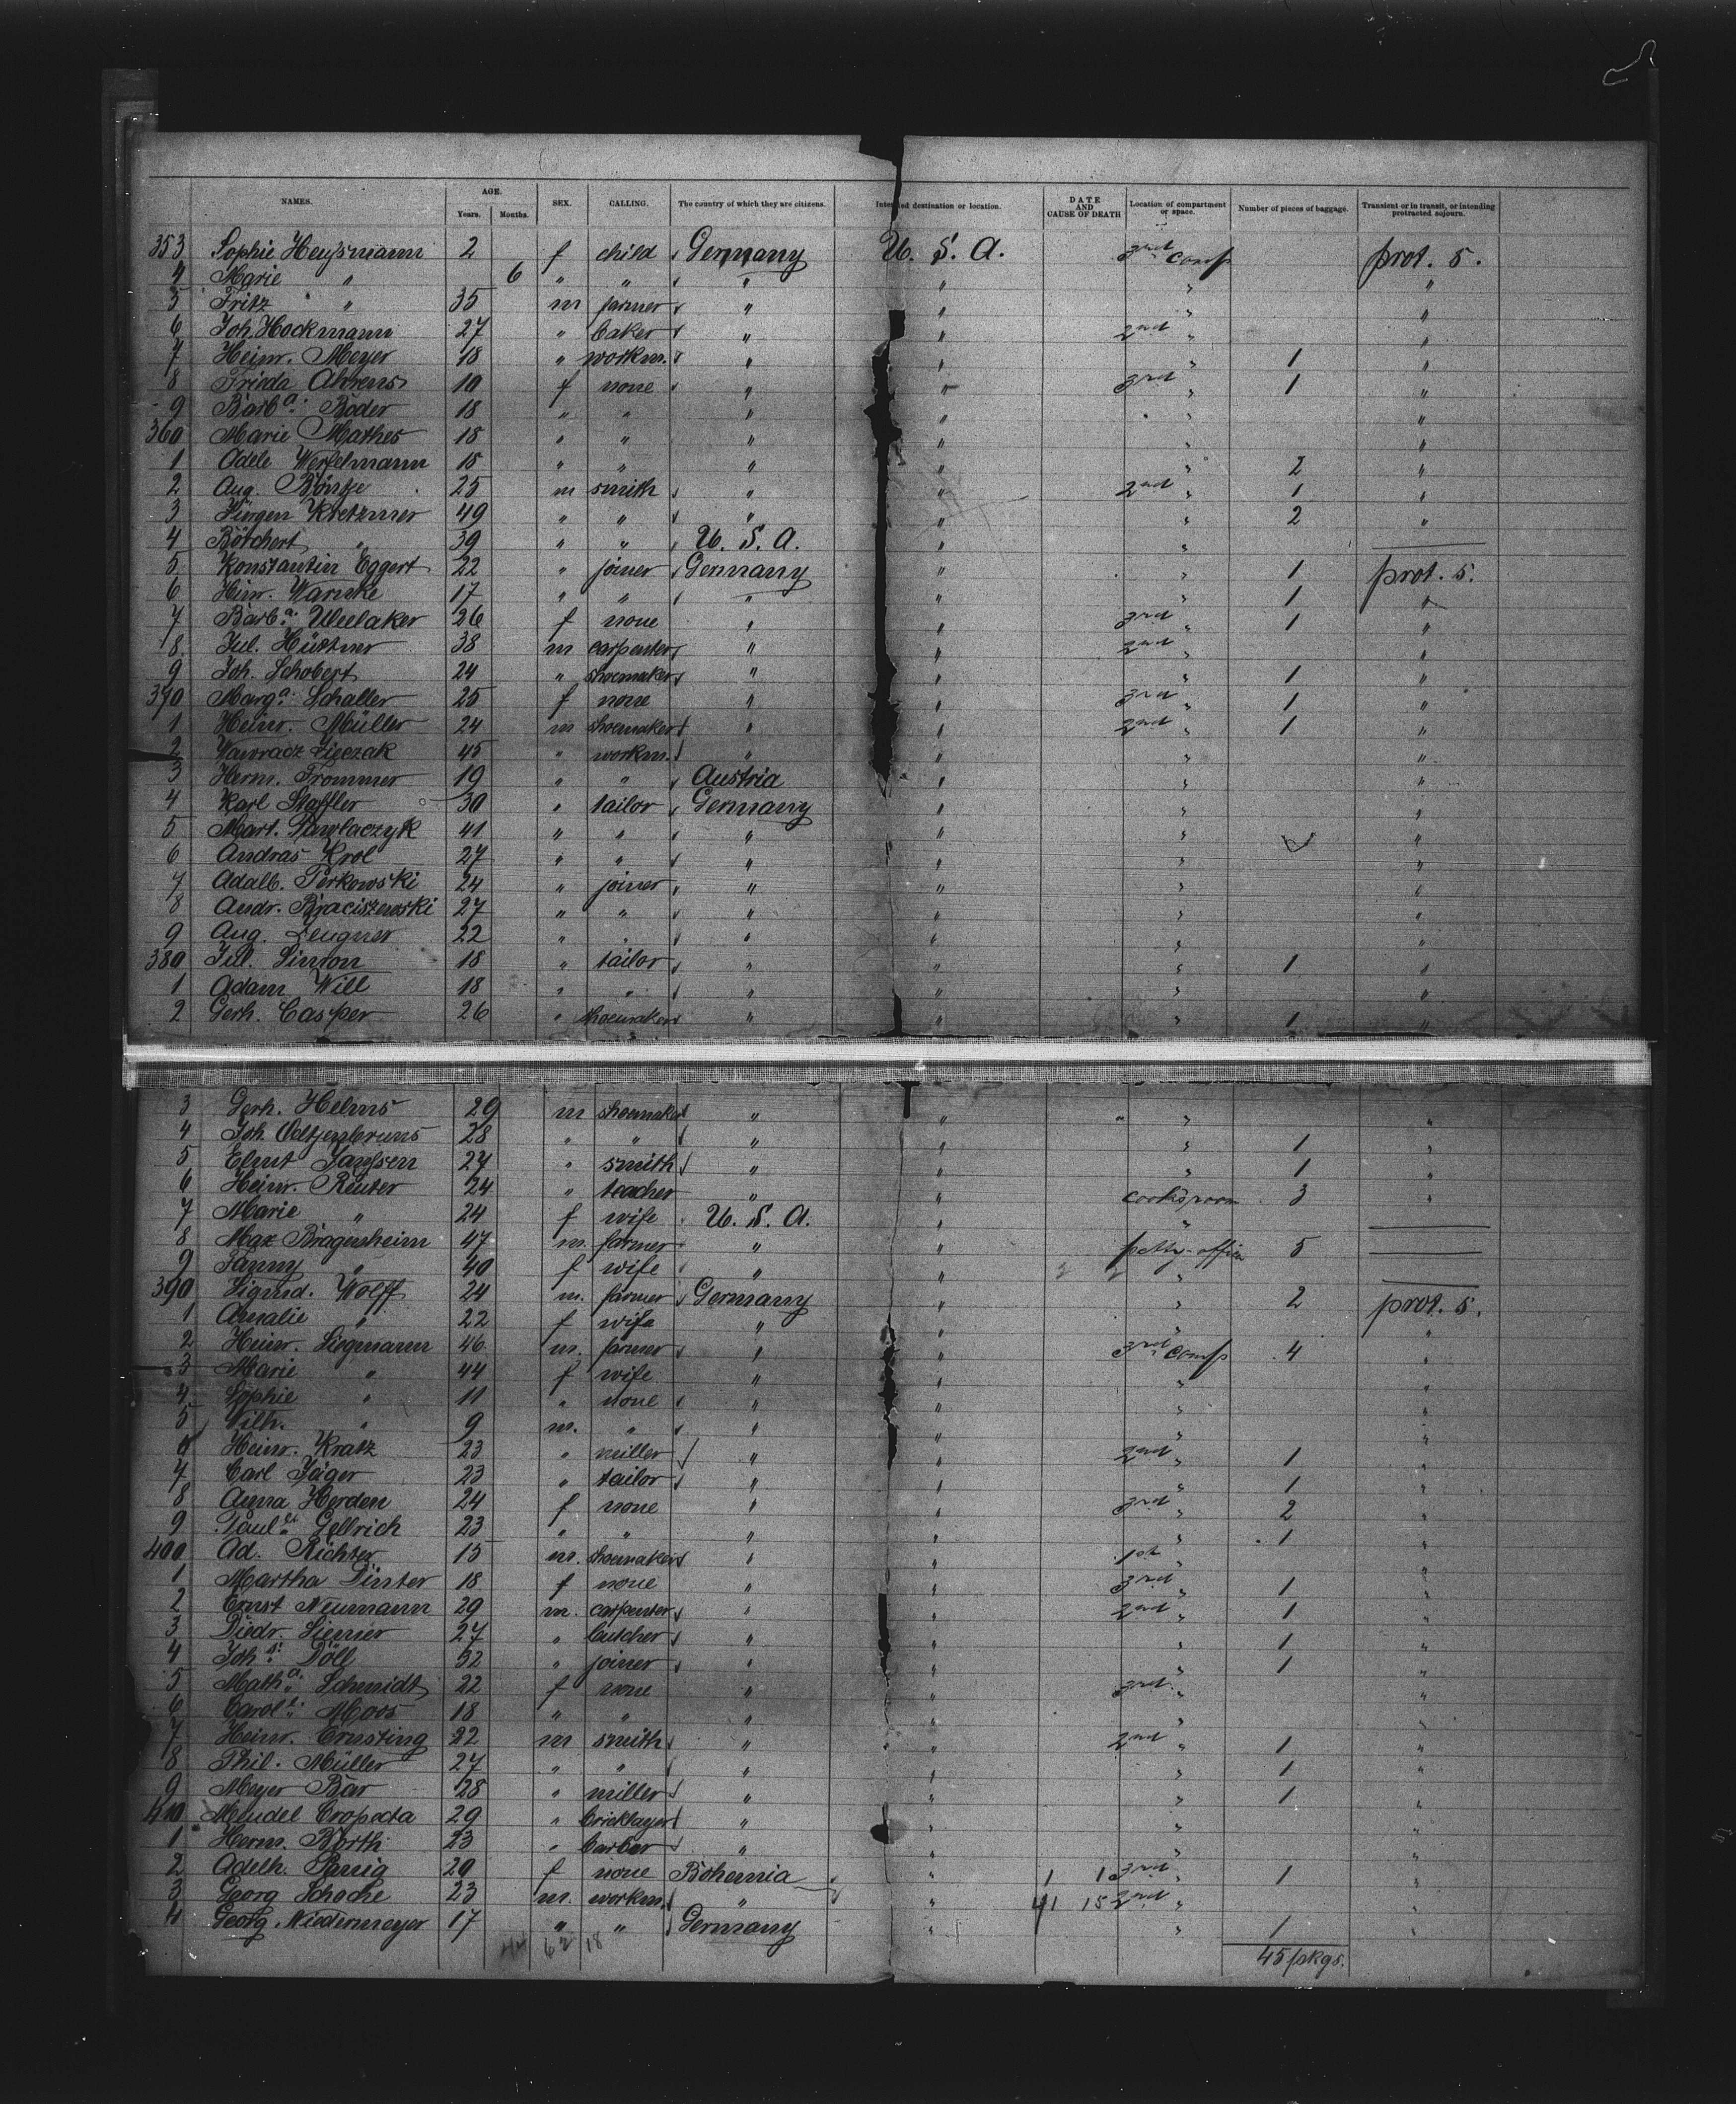 NAMES. AGE. Years. Months. SEX. CALLING. The country of which they are citizens. Intended destination or location. DATE AND CAUSE OF DEATH Location of compartment or space. Number of pieces of baggage. Transient or in transit, or intending protracted sojourn.
353 Sophie Heyssmann 2 f child Germany U. S. A. 3rd comp prot. S.
4 Marie " 6 " " " " " "
5 Fritz " 35 m farmer " " " "
6 Joh. Hockmann 27 " baker " " 2nd " "
7 Heinr. Meyer 18 " workm. " " " 1 "
8 Frieda Ahrens 10 f none " " 3rd " 1 "
9 Barba. Röder 18 " " " " " "
360 Marie Mathes 18 " " " " " "
1 Adele Wefelmann 15 " " " " " 2 "
2 Aug. 25 m smith " " 2nd " 1 "
3 Jürgen Kretzmer 49 " " " " " 2 "
4 Borchert " 39 " " U. S. A. " "
5 Konstantin Eggert 22 " joiner Germany " " 1 prot. S.
6 Hinr. Warnke 17 " " " " " 1 "
7 Barba. 26 f none " " 3rd " 1 "
8 Jul. Hüttner 38 m carpenter " " 2nd " "
9 Joh. Schobert 24 " shoemaker " " " 1 "
370 Marga. Schaller 25 f none " " 3rd " 1 "
1 Heinr. Müller 24 m shoemaker " " 2nd " 1 "
2 45 " workm. " " " "
3 Herm. Trommer 19 " " Austria " " "
4 Karl Staffler 30 " tailor Germany " " "
5 Mart. Pawlaczyk 41 " " " " " "
6 Andras Krol 27 " " " " " "
7 Adalb. Perkowski 24 " joiner " " " "
8 Andr. Braciszewski 27 " " " " " "
9 Aug. Zeugner 22 " " " " " "
380 Jul. Simon 18 " tailor " " " 1 "
1 Adam Will 18 " " " " " "
2 Gerh. Casper 26 " shoemaker " " " 1 "
3 Gerh. Helms 29 m shoemaker " " " " "
4 Joh. Oeltjenbruns 28 " " " " " 1 "
5 Ernst Janssen 27 " smith " " " 1 "
6 Heinr. Reuter 24 " teacher " " cooksroom 3 "
7 Marie " 24 f wife U. S. A. " "
8 Max Bragensheim 47 m. farmer " " petty-officer 5
9 Fanny " 40 f wife " " "
390 Sigmd. Wolff 24 m. farmer Germany " " 2 prot. S.
1 Amalie " 22 f wife " " " "
2 Heinr. Siegmann 46 m. farmer " " 3rd comp 4 "
3 Marie " 44 f wife " " " "
4 Sophie " 11 " none " " " "
5 Wilh. " 9 m. " " " " "
6 Heinr. Kratz 23 " miller " " 2nd " 1 "
7 Carl Jäger 23 " tailor " " " 1 "
8 Anna Herden 24 f none " " 3rd " 2 "
9 Paule. Gellrich 23 " " " " " 1 "
400 Ad. Richter 15 m. shoemaker " " 1st " "
1 Martha Dinter 18 f none " " 3rd " 1 "
2 Ernst Neumann 29 m. carpenter " " 2nd " 1 "
3 Diedr. Siemer 27 " butcher " " " 1 "
4 Johs. Döll 52 " joiner " " " 1 "
5 Matha. Schmidt 22 f none " " 3rd " "
6 Carole. Moos 18 " " " " " "
7 Heinr. Ernsting 22 m smith " " 2nd " 1 "
8 Phil. Müller 27 " " " " " 1 "
9 Meyer Bär 28 " miller " " " 1 "
410 Mendel Cropecta 29 " bricklayer " " " "
1 Herm. Borth 23 " barber " " " "
2 Adelh. 29 f none Bohemia " 1 1 3rd " 1 "
3 Georg Schoche 23 m. workm. " " 41 15 2nd " "
4 Georg Niedermeyer 17 " " Germany " " 1 "
62 18
45 pkgs.